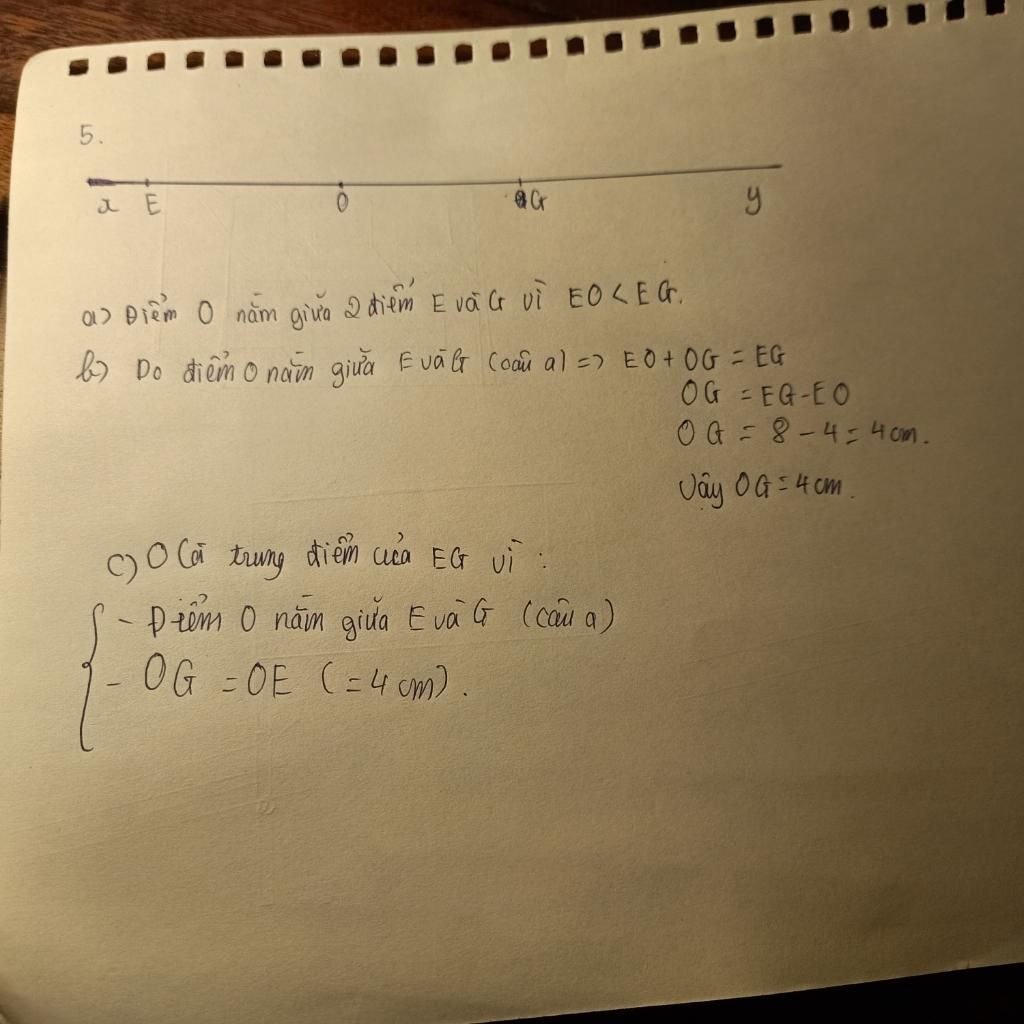 5.
x E O G y
a) Điểm O nằm giữa 2 điểm E và G vì EO < EG.
b) Do điểm O nằm giữa E và G (câu a) => EO + OG = EG
OG = EG - EO
OG = 8 - 4 = 4 cm.
Vậy OG = 4 cm.
c) O là trung điểm của EG vì :
- Điểm O nằm giữa E và G (câu a)
- OG = OE (= 4 cm).